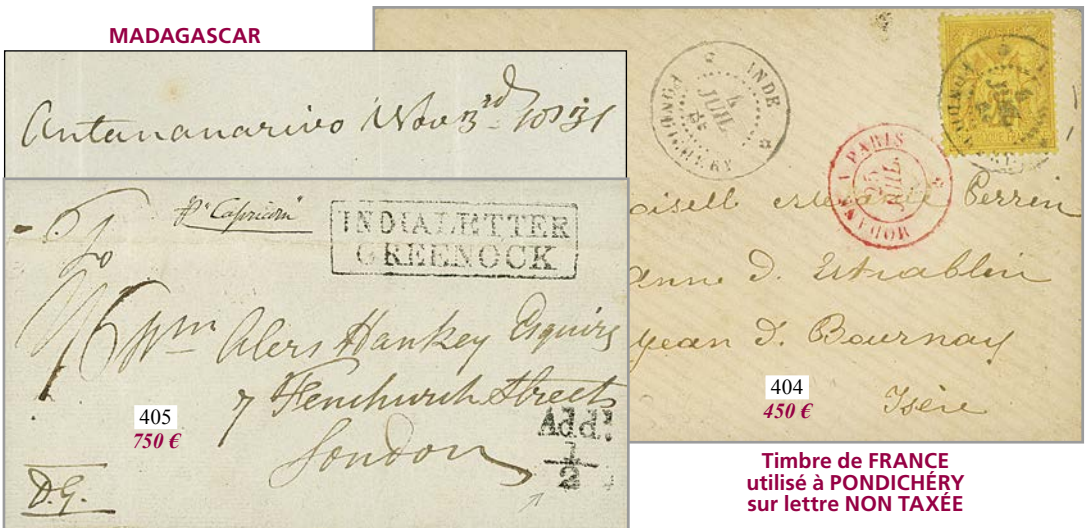 MADAGASCAR
Antananarivo Nov 3rd 1831
pr Capricorn
INDIA LETTER
GREENOCK
To
Wm Alers Hankey Esquire
7 Fenchurch Street
London
Addl
1/2
D.G.
405
750 €
INDE
PONDICHERY
4
JUIL
MODANE A PARIS
25
JUIL
Perrin
D. Estrablin
St jean D. Bournay
Isère
404
450 €
Timbre de FRANCE
utilisé à PONDICHÉRY
sur lettre NON TAXÉE